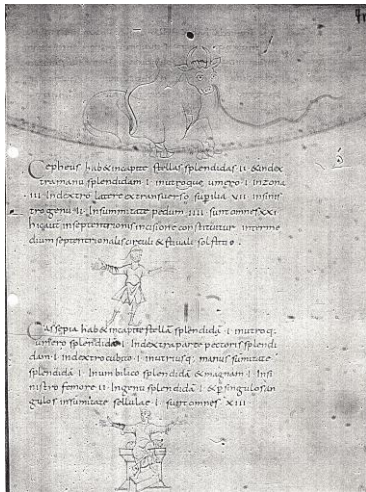 Cepheus hab& incapite stellas splendidas II & index
tramanu splendidam I inutroque umero I inzona
III Indextro latere extransuerso supilia VII insinis
trogenu II Insummitate pedum IIII sunt omnes XXI
hic aut inseptentrionis incisione constituitur interme
dium septentrionalis circuli & estiuali solstitio.
Cassepia hab& incapite stellā splendidā I inutroq.
umero splendidā I Indextraparte pectoris splendi
dam I indextro cubito I inutriusq; manus sumitate
splendidā I Inumbilico splendidā & magnam I Insi
nistro femore II Ingenu splendidā I & p singulos an
gulos insumitate sellulae I sunt omnes XIII